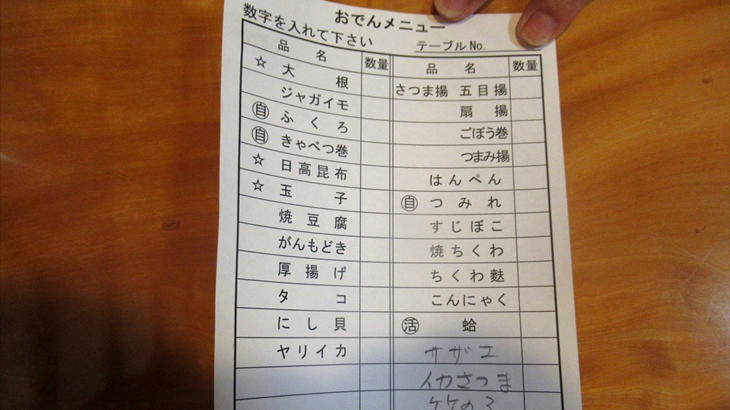 おでんメニュー
数字を入れて下さい
テーブルNo.
品名 数量
☆ 大根
ジャガイモ
自 ふくろ
自 きゃべつ巻
☆ 日高昆布
☆ 玉子
焼豆腐
がんもどき
厚揚げ
タコ
にし貝
ヤリイカ
品名 数量
さつま揚 五目揚
扇揚
ごぼう巻
つまみ揚
はんぺん
自 つみれ
すじぼこ
焼ちくわ
ちくわ麩
こんにゃく
活 蛤
サザエ
イカさつま